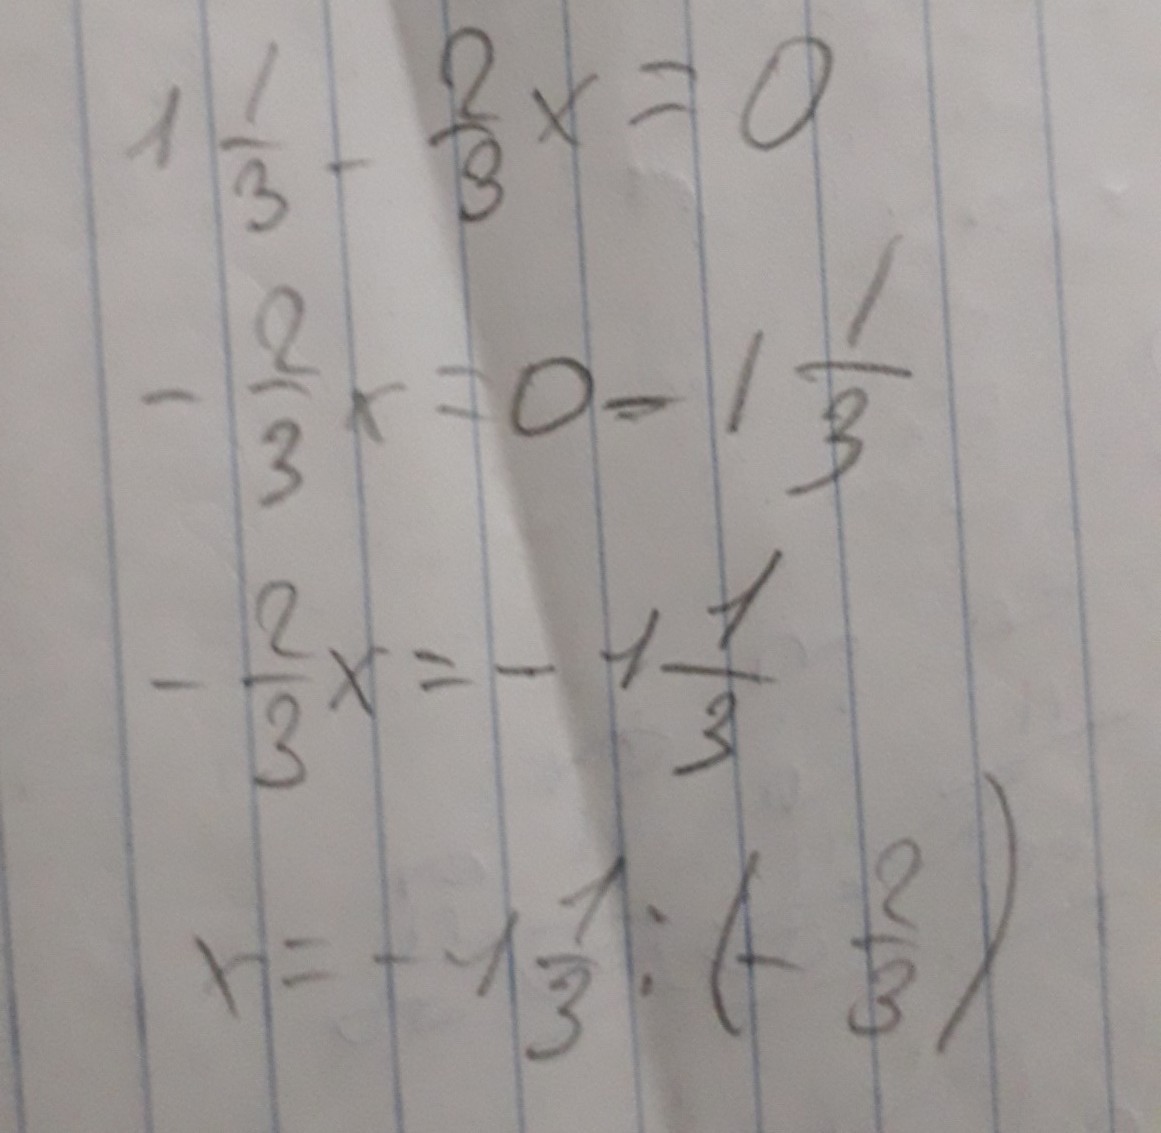 1 1/3 - 2/3 x = 0
- 2/3 x = 0 - 1 1/3
- 2/3 x = - 1 1/3
x = - 1 1/3 : (- 2/3)